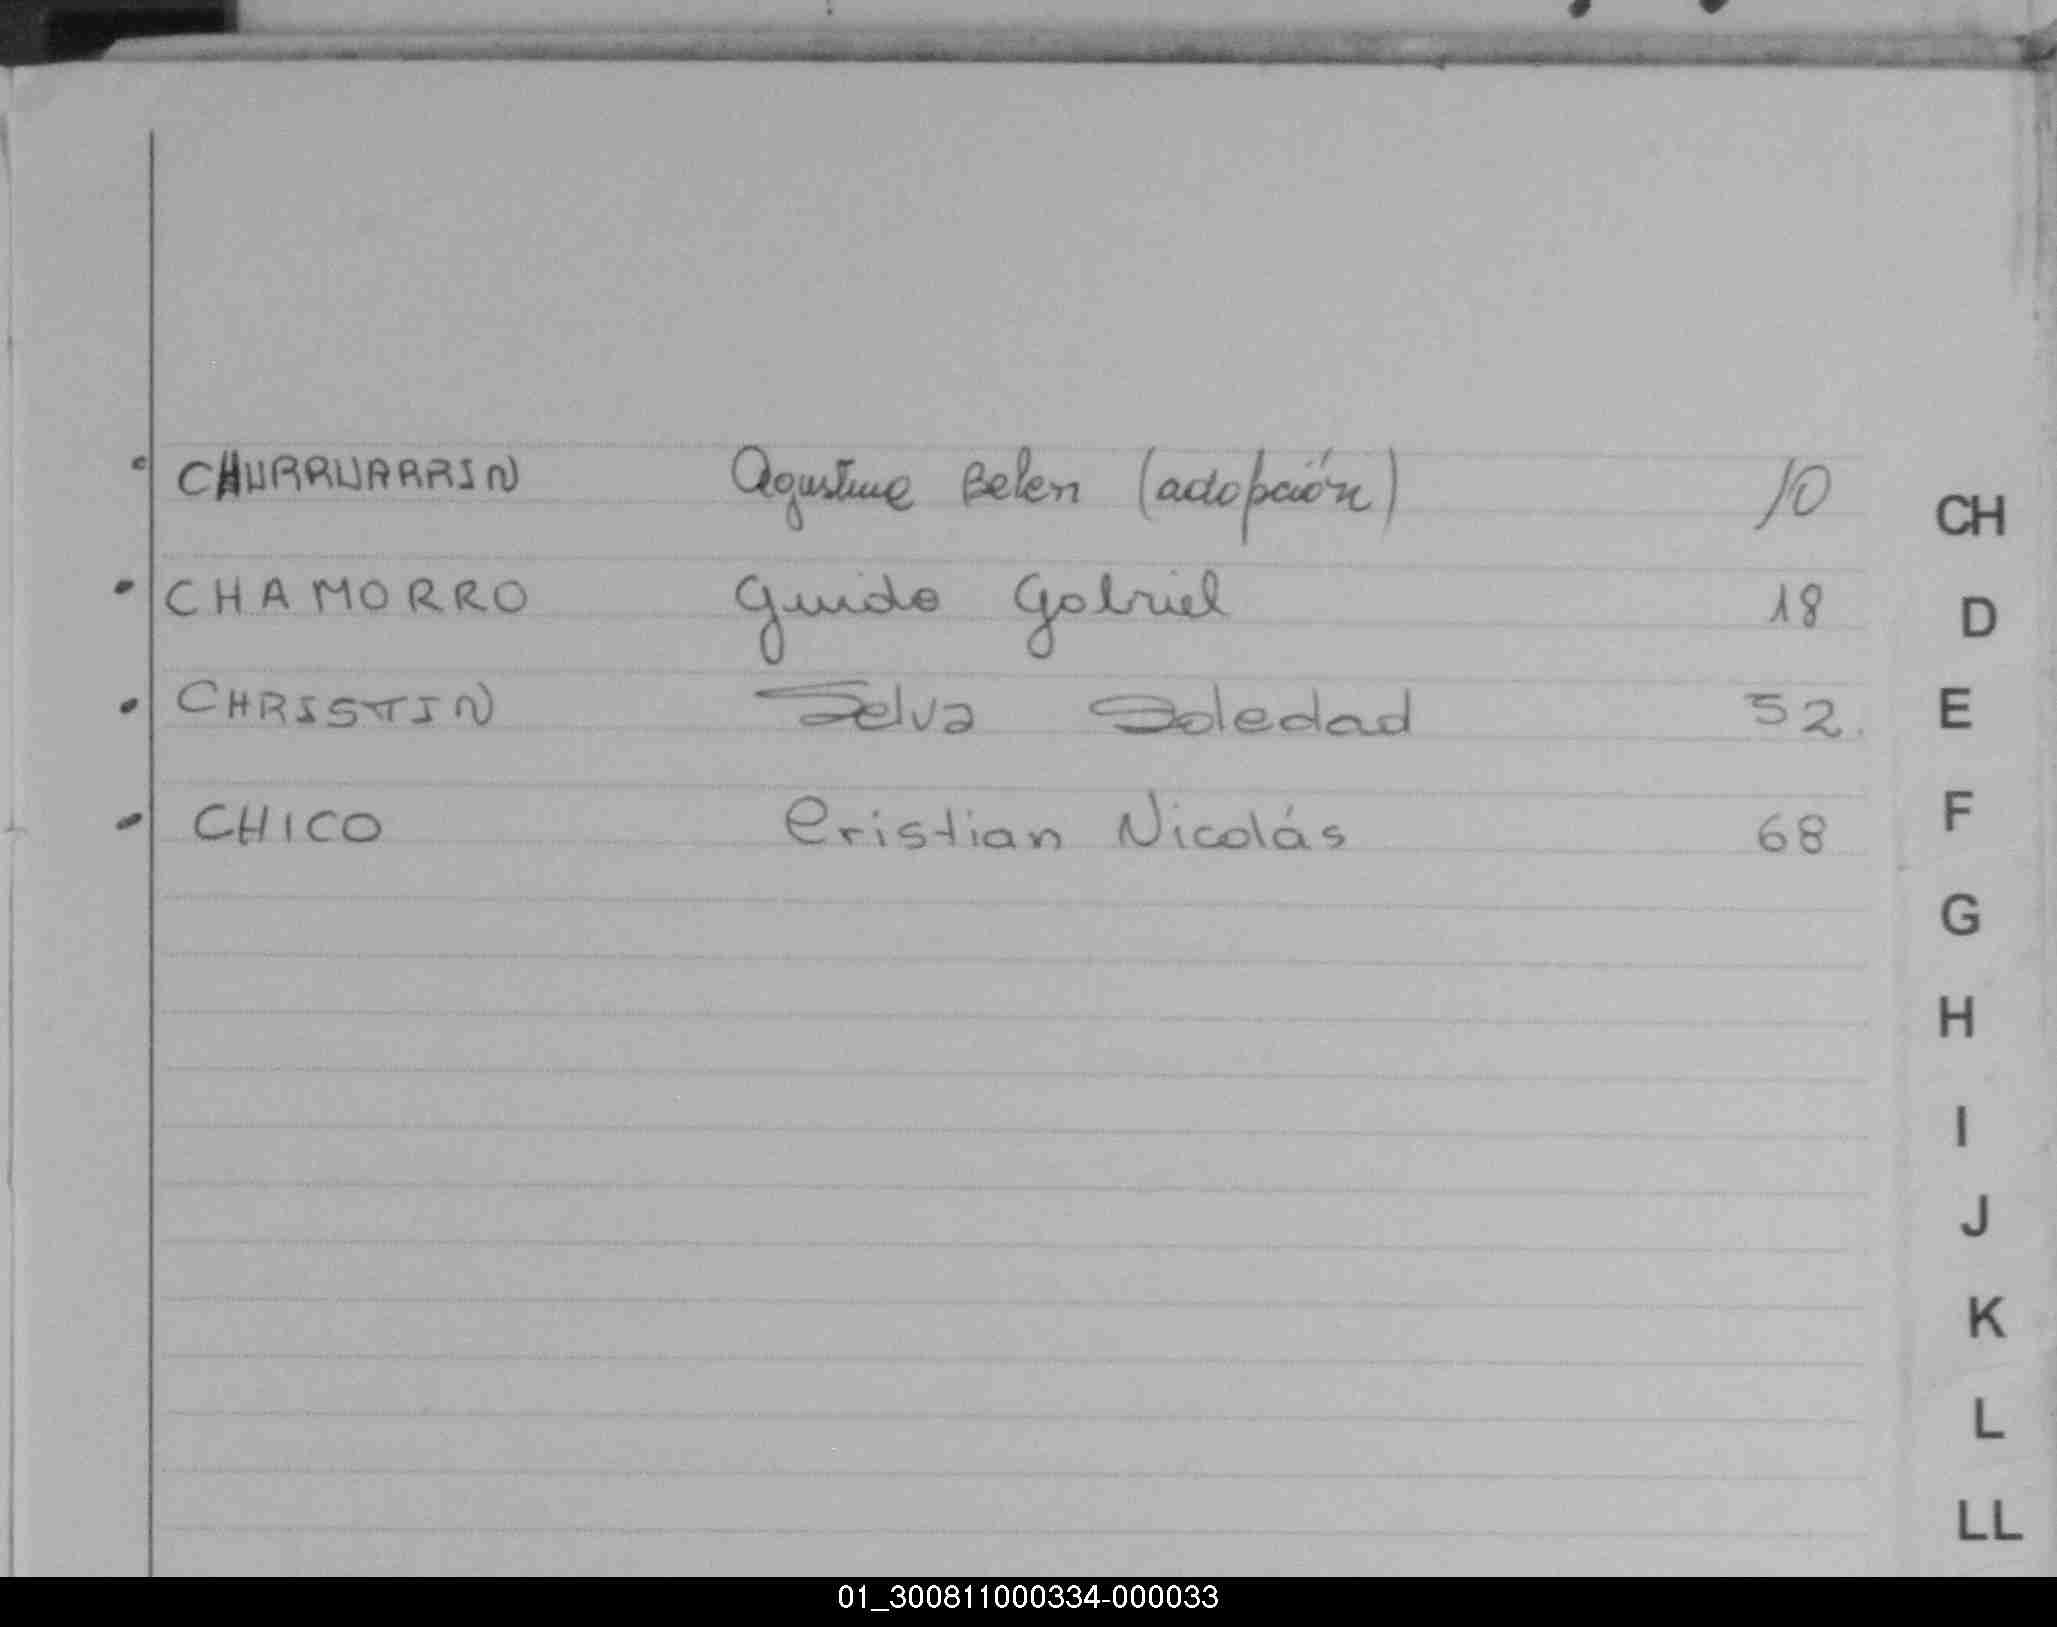 CHURRUARRIN Agustina Belen (adopción) 10
CHAMORRO Guido Gabriel 18
CHRISTIN Selva Soledad 52.
CHICO Cristian Nicolás 68
CH
D
E
F
G
H
I
J
K
L
LL
01_300811000334-000033